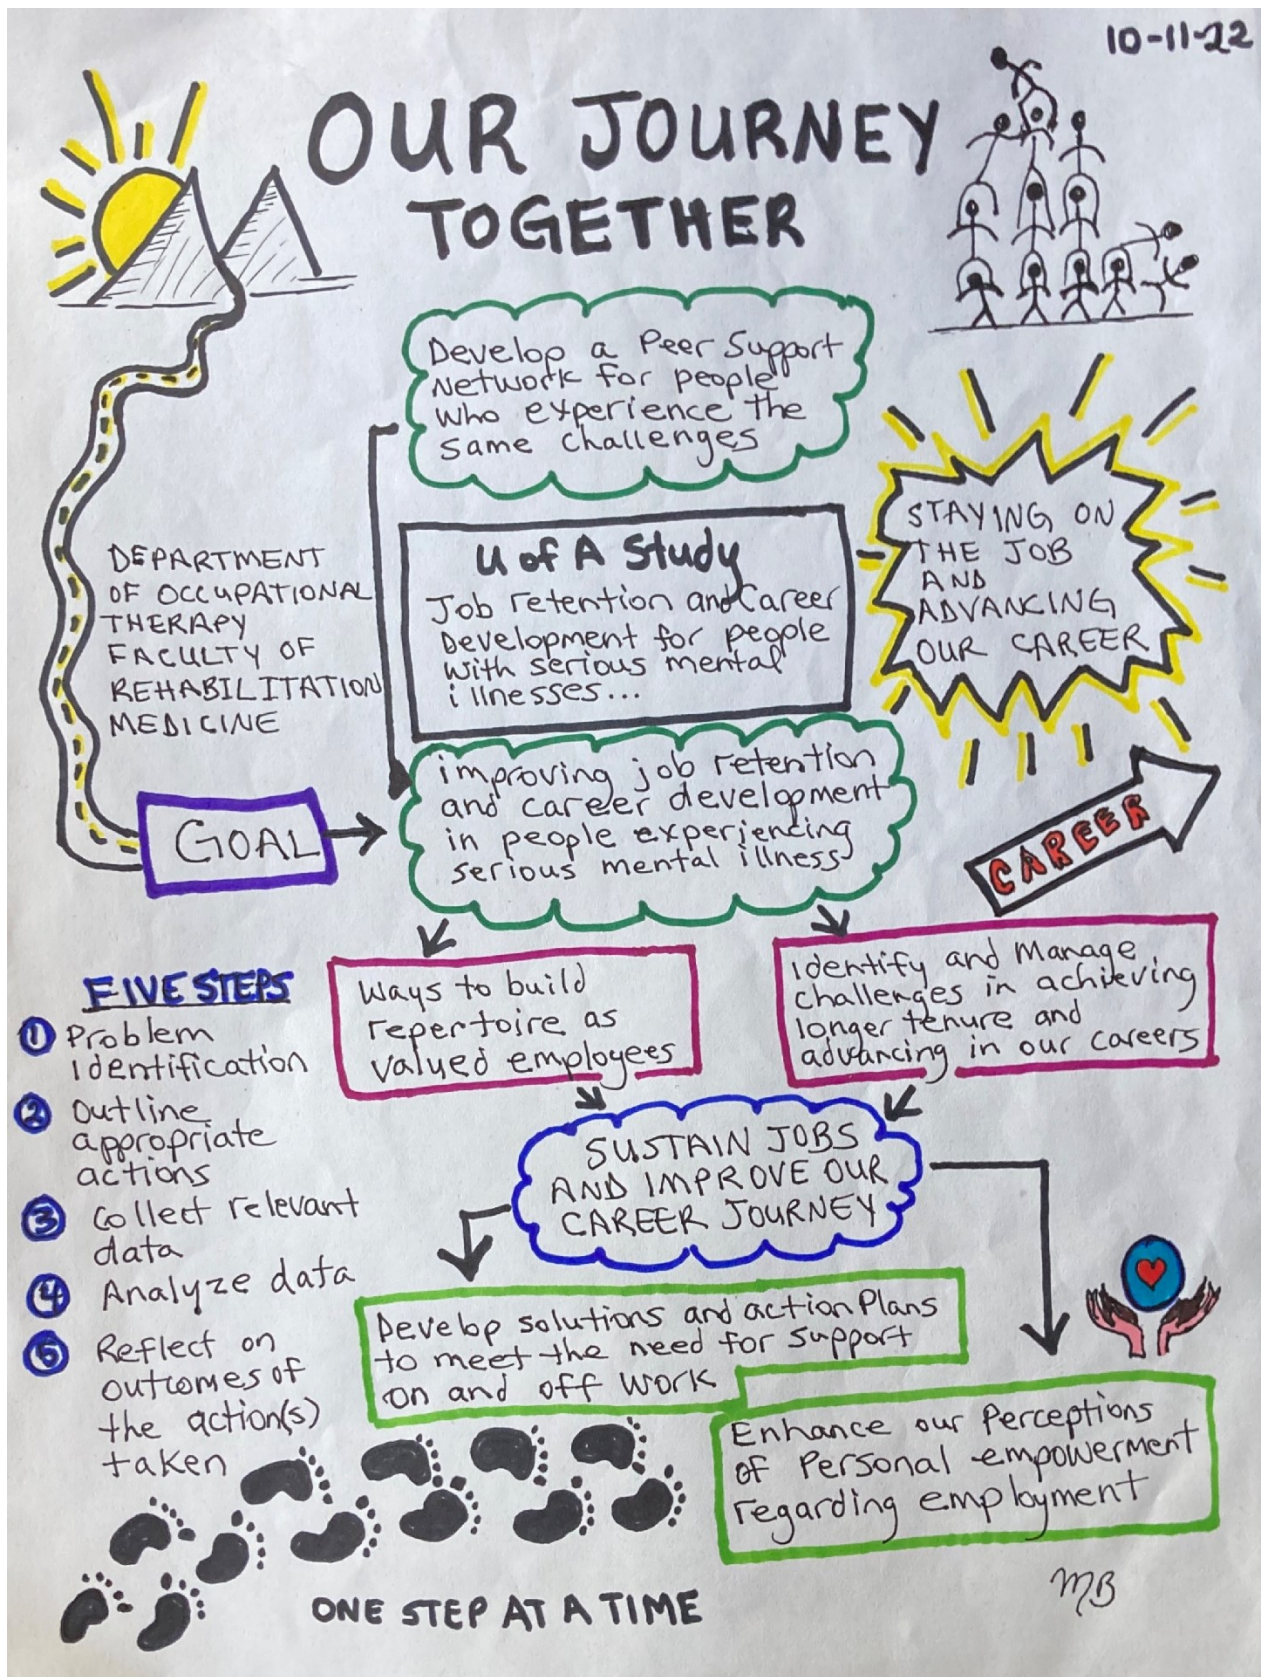 10-11-22
OUR JOURNEY
TOGETHER
Develop a Peer Support
Network for people
who experience the
same challenges
U of A Study
Job retention and Career
Development for people
with serious mental
illnesses...
STAYING ON
THE JOB
AND
ADVANCING
OUR CAREER
DEPARTMENT
OF OCCUPATIONAL
THERAPY
FACULTY OF
REHABILITATION
MEDICINE
GOAL
improving job retention
and career development
in people experiencing
serious mental illness
CAREER
Ways to build
repertoire as
valued employees
Identify and Manage
challenges in achieving
longer tenure and
advancing in our careers
FIVE STEPS
1 Problem
identification
2 Outline
appropriate
actions
3 Collect relevant
data
4 Analyze data
5 Reflect on
outcomes of
the action(s)
taken
SUSTAIN JOBS
AND IMPROVE OUR
CAREER JOURNEY
Develop solutions and action Plans
to meet the need for support
on and off work
Enhance our Perceptions
of Personal empowerment
regarding employment
MB
ONE STEP AT A TIME